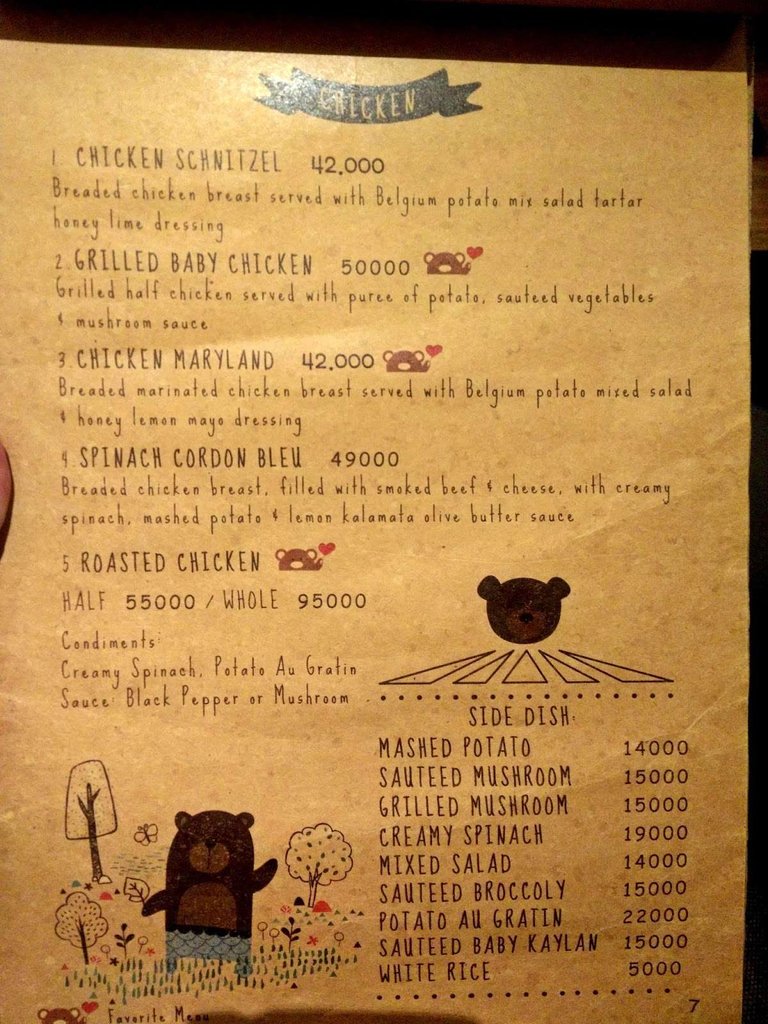 CHICKEN
1. CHICKEN SCHNITZEL 42.000
Breaded chicken breast served with Belgium potato mix salad tartar
honey lime dressing
2. GRILLED BABY CHICKEN 50000
Grilled half chicken served with puree of potato, sauteed vegetables
& mushroom sauce
3. CHICKEN MARYLAND 42.000
Breaded marinated chicken breast served with Belgium potato mixed salad
& honey lemon mayo dressing
4. SPINACH CORDON BLEU 49000
Breaded chicken breast, filled with smoked beef & cheese, with creamy
spinach, mashed potato & lemon kalamata olive butter sauce
5 ROASTED CHICKEN
HALF 55000 / WHOLE 95000
Condiments:
Creamy Spinach, Potato Au Gratin
Sauce: Black Pepper or Mushroom
SIDE DISH:
MASHED POTATO 14000
SAUTEED MUSHROOM 15000
GRILLED MUSHROOM 15000
CREAMY SPINACH 19000
MIXED SALAD 14000
SAUTEED BROCCOLY 15000
POTATO AU GRATIN 22000
SAUTEED BABY KAYLAN 15000
WHITE RICE 5000
7
Favorite Menu